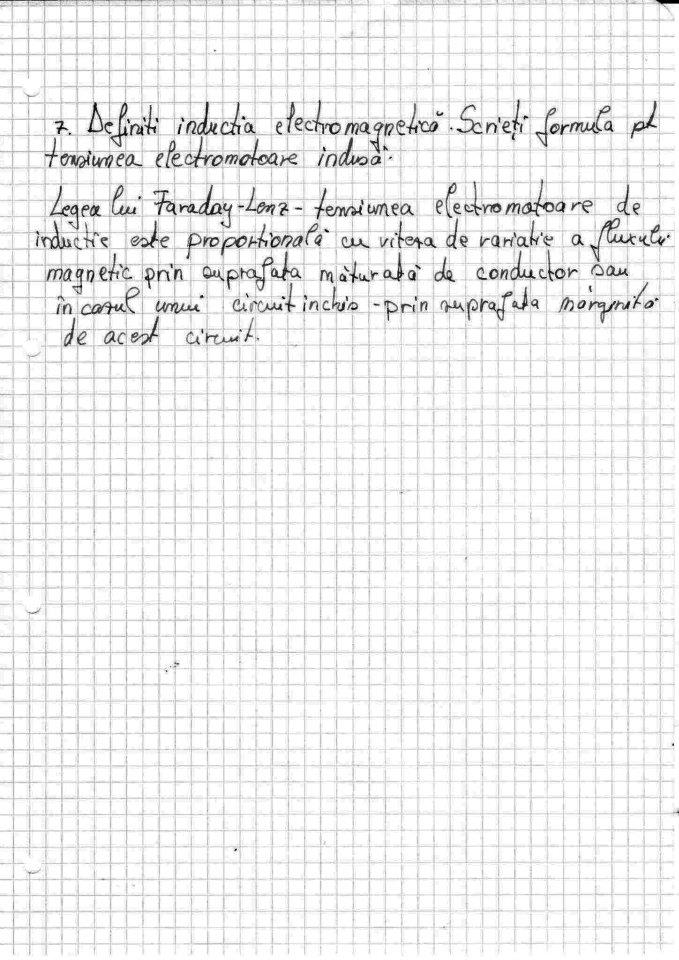 7. Definiti inductia electromagnetică. Scrieți formula pt
tensiunea electromotoare indusă.
Legea lui Faraday-Lenz - tensiunea electromotoare de
inductie este proportională cu viteza de variatie a fluxului
magnetic prin suprafata măturată de conductor sau
în cazul unui circuit inchis - prin suprafata mărginită
de acest circuit.